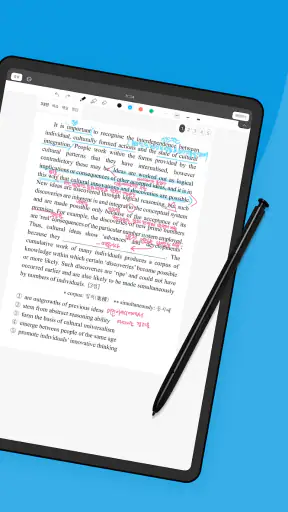 It is important to recognise the interdependence between
individual, culturally formed actions and the state of cultural
integration. People work within the forms provided by the
cultural patterns that they have internalised, however
contradictory these may be. Ideas are worked out as logical
implications or consequences of other accepted ideas, and it is in
this way that cultural innovations and discoveries are possible.
New ideas are discovered through logical reasoning, but such
discoveries are inherent in and integral to the conceptual system
and are made possible only because of the acceptance of its
premises. For example, the discoveries of new prime numbers
are 'real' consequences of the particular number system employed.
Thus, cultural ideas show 'advances' and 'developments'
because they
. The
cumulative work of many individuals produces a corpus of
knowledge within which certain 'discoveries' become possible
or more likely. Such discoveries are 'ripe' and could not have
occurred earlier and are also likely to be made simultaneously
by numbers of individuals. [3점]
* corpus: 집적(集積) ** simultaneously: 동시에
① are outgrowths of previous ideas
② stem from abstract reasoning ability
③ form the basis of cultural universalism
④ emerge between people of the same age
⑤ promote individuals' innovative thinking